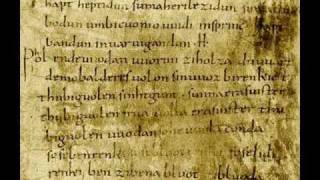 hapt heptidun sumaherilezidun suma
bodun umbicuonio uuidi insprinc
bandun inuar uigandun .H.
Phol endeuuodan uuorun ziholza du uuart
demobalderesuolon sinuuoz birenkict
thubiguolen sinhtgunt . sunnaerasuister
thubiguolen friia uolla erasuister thu
biguolen uuodan conda
sosebenrenki soselidi
renki ben zibena bluot zibluoda